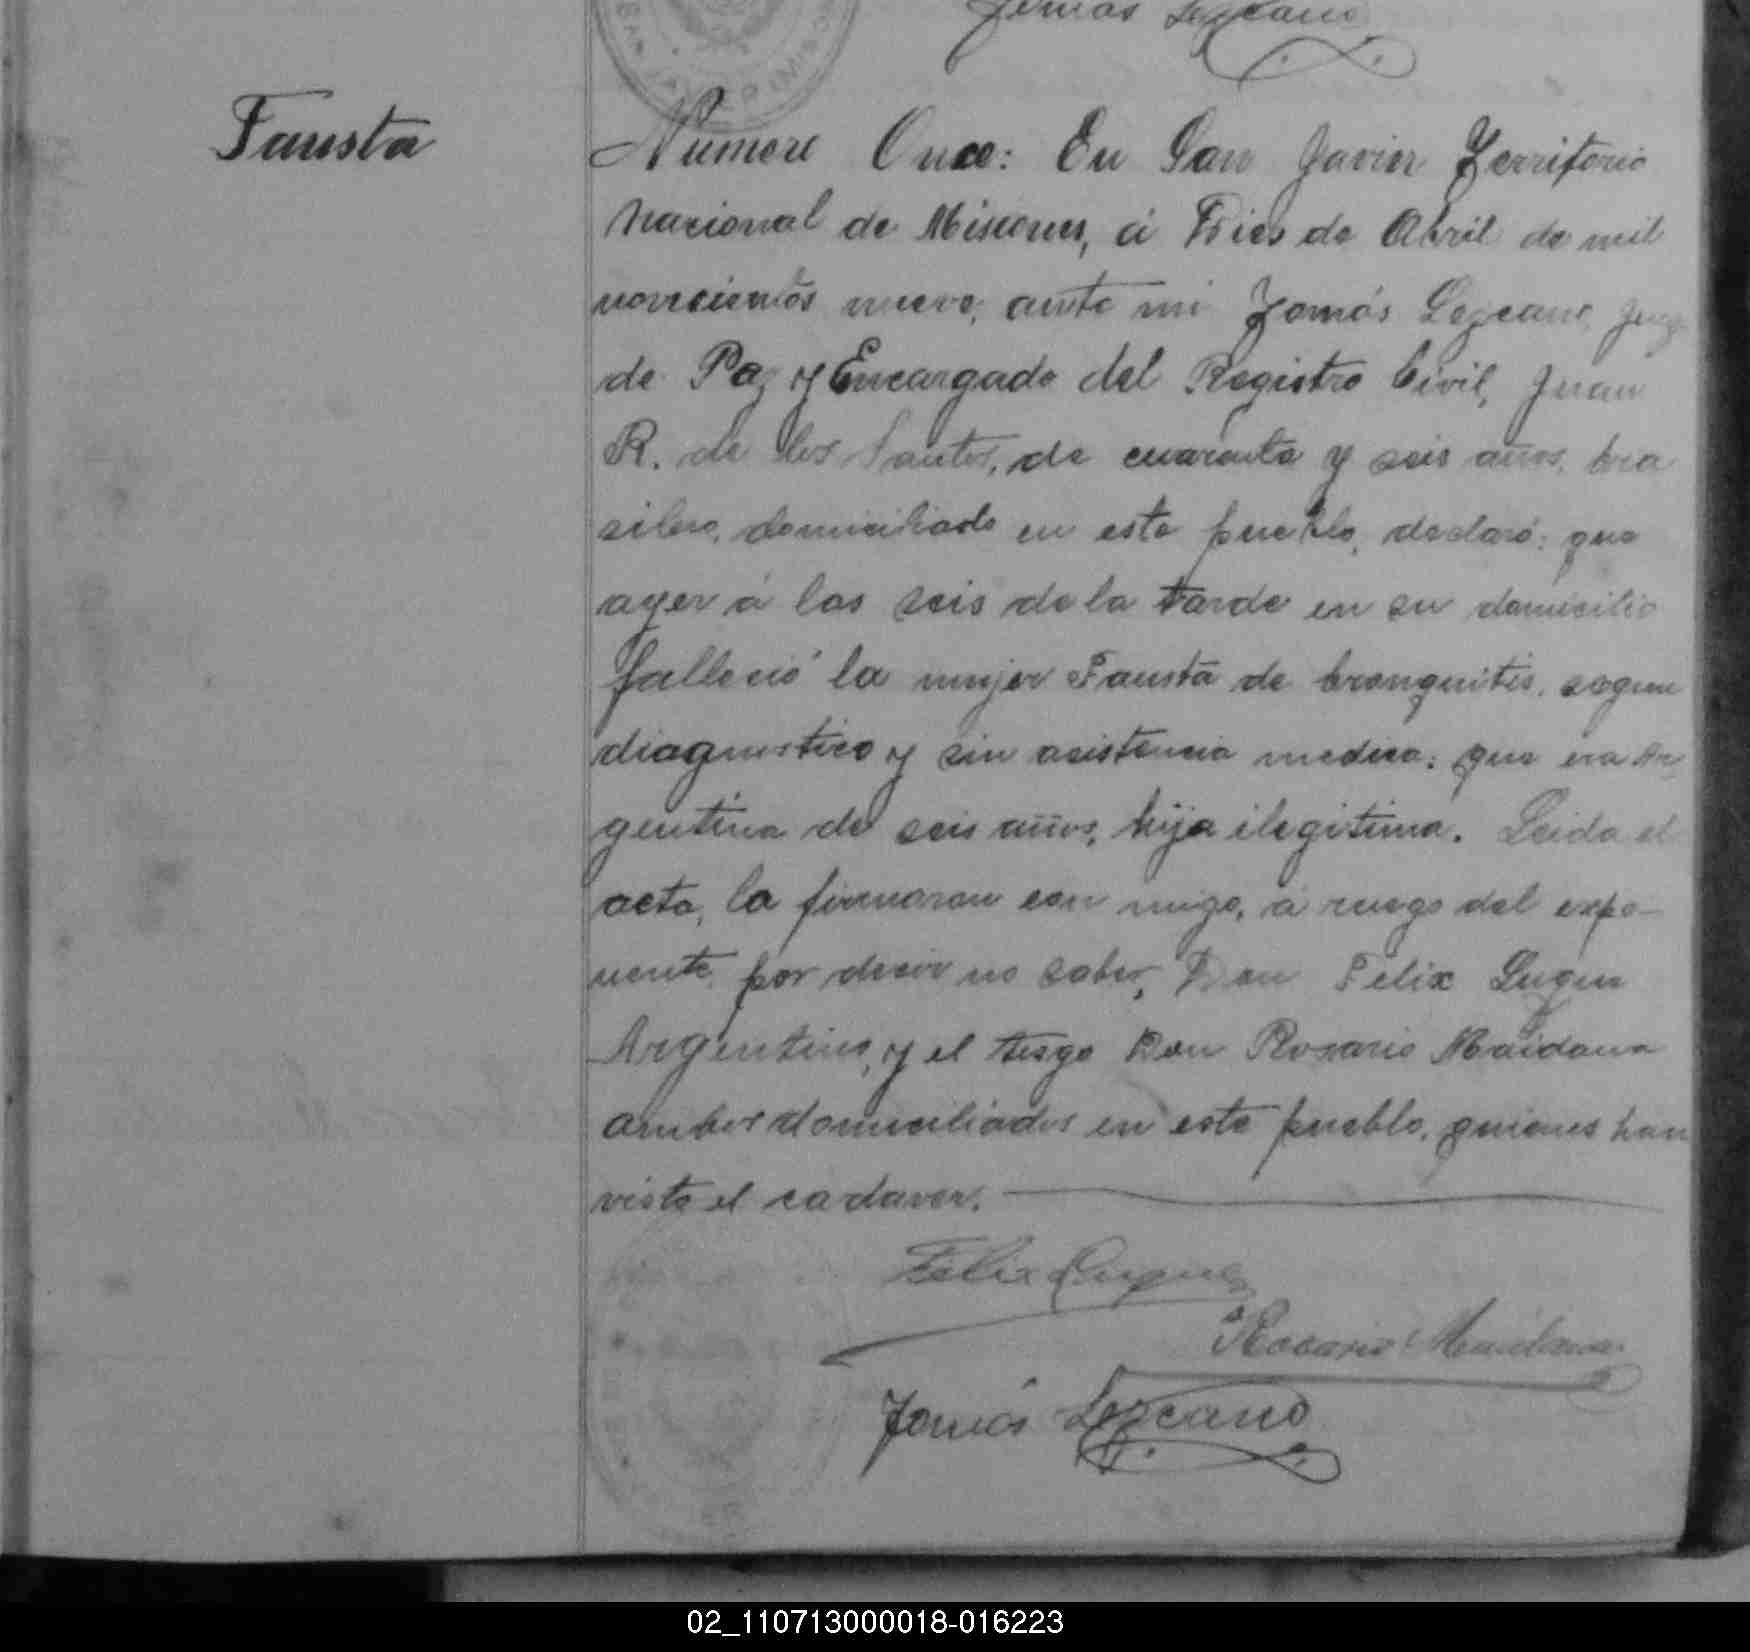 Tomás Lezcano
Fausta
Número Once: En San Javier Territorio
Nacional de Misiones, á Dies de Abril de mil
novecientos nueve, ante mi Tomás Lezcano, Juez
de Paz y Encargado del Registro Civil, Juan
R. de los Santos, de cuarenta y seis años, bra
silero, domiciliado en este pueblo, declaró: que
ayer á las seis de la tarde en su domicilio
falleció la mujer Fausta de bronquitis, segun
diagnostico y sin asistencia medica; que era Ar
gentina de seis años, hija ilegitima. Leida el
acta, la firmaron con migo, á ruego del expo-
nente, por decir no saber, Don Felix Luque
Argentino, y el tesgo Don Rosario Maidana
ambos domiciliados en este pueblo, quienes han
visto el cadaver.
Felix Luque
Rosario Maidana
Tomás Lezcano
02_110713000018-016223